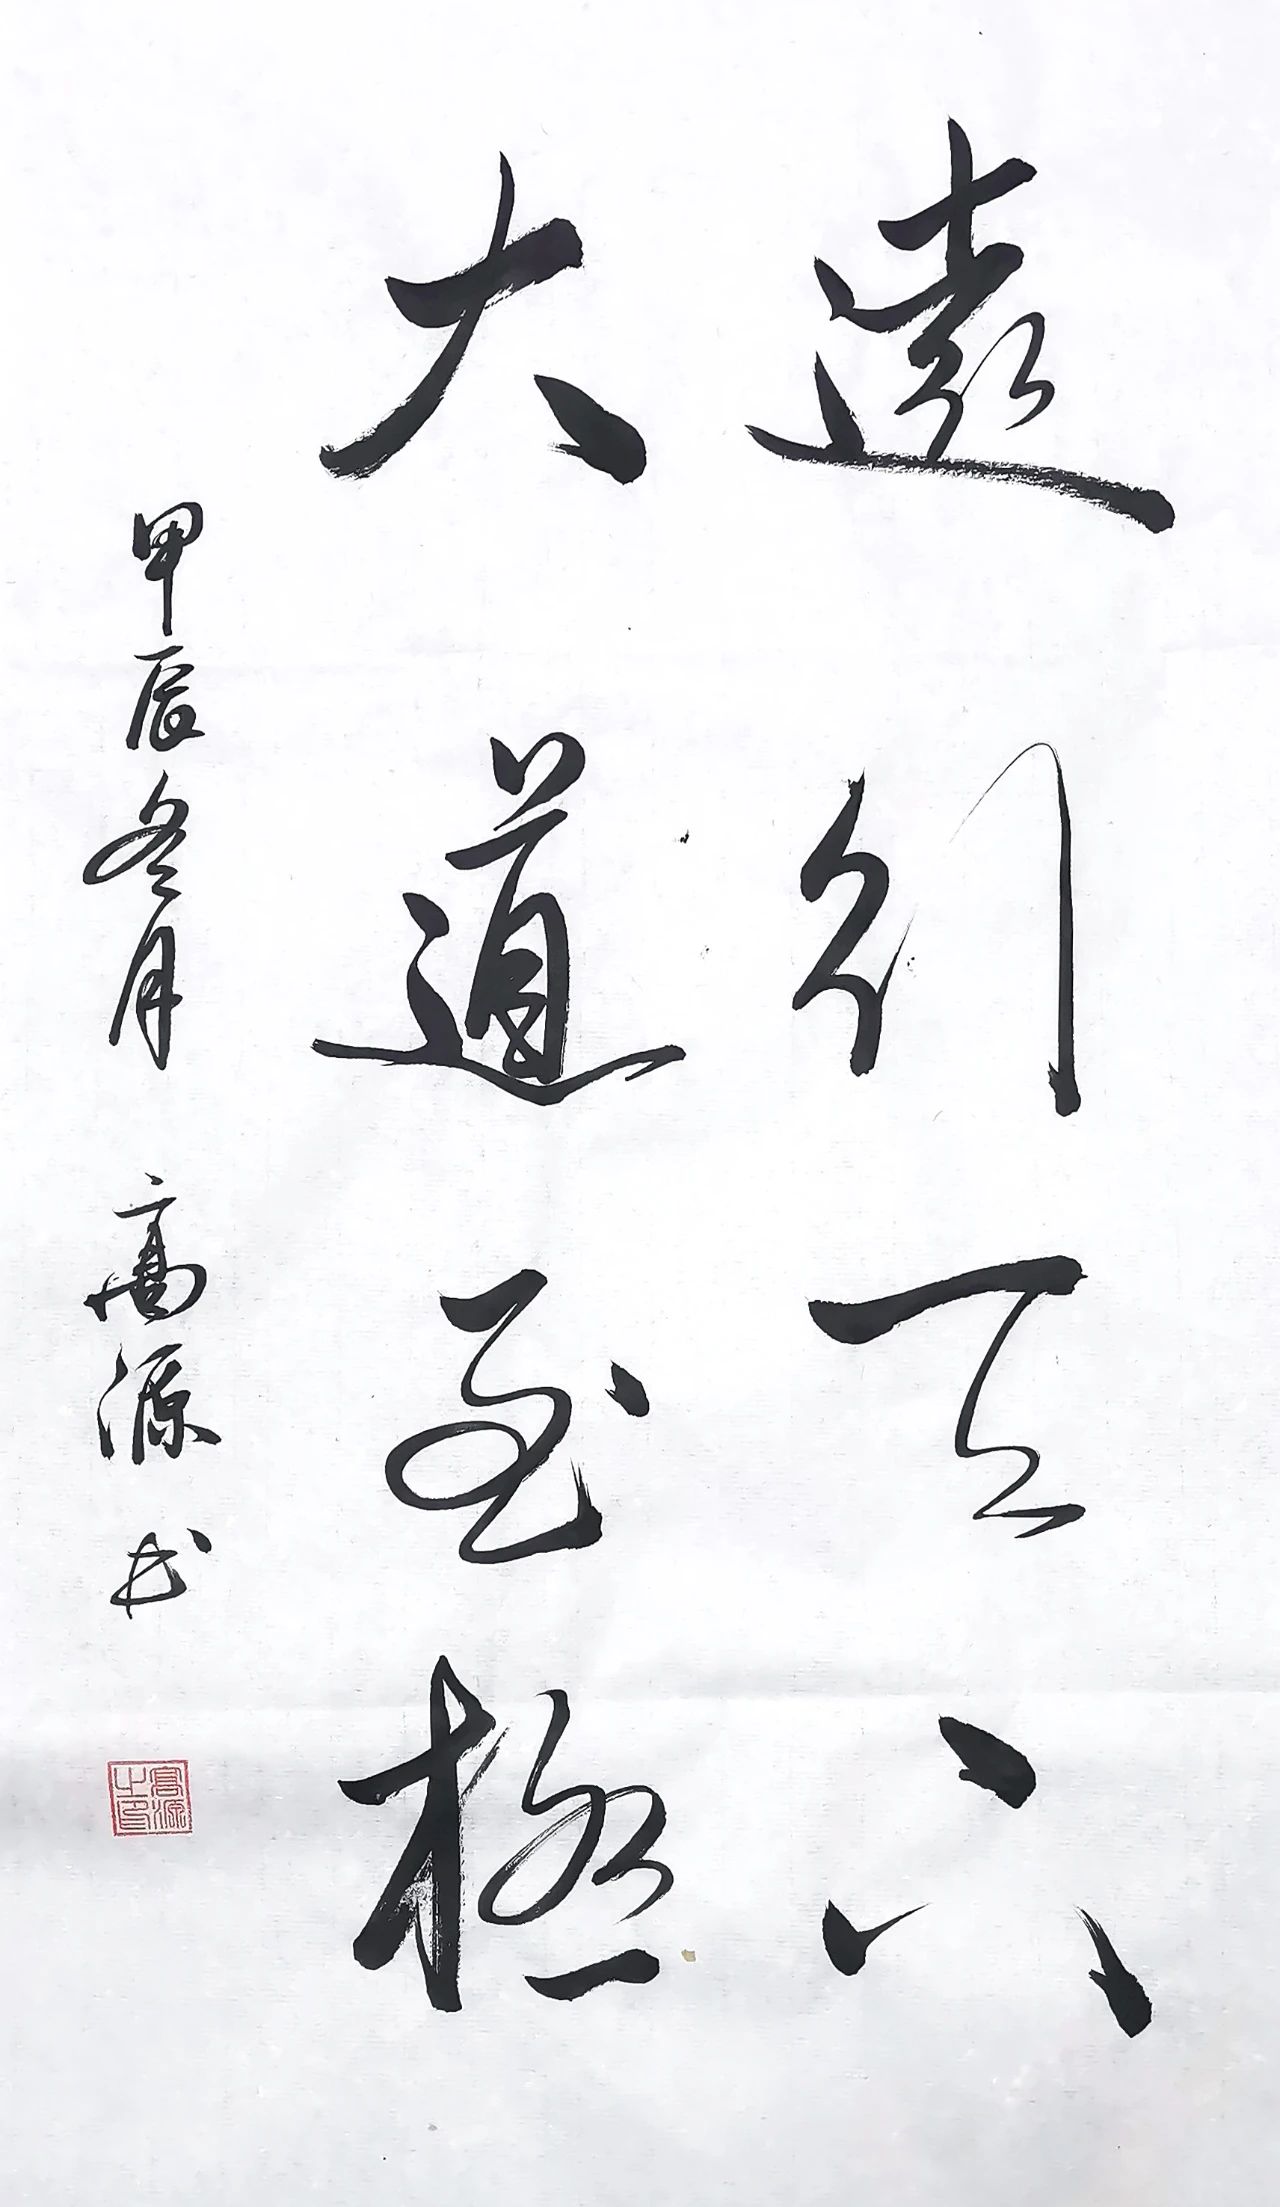 遠行天下
大道至極
甲辰冬月 高源书
高源之印